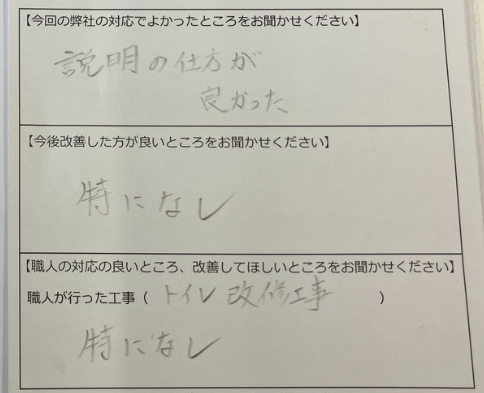 【今回の弊社の対応でよかったところをお聞かせください】
説明の仕方が
良かった
【今後改善した方が良いところをお聞かせください】
特になし
【職人の対応の良いところ、改善してほしいところをお聞かせください】
職人が行った工事（ トイレ改修工事 ）
特になし